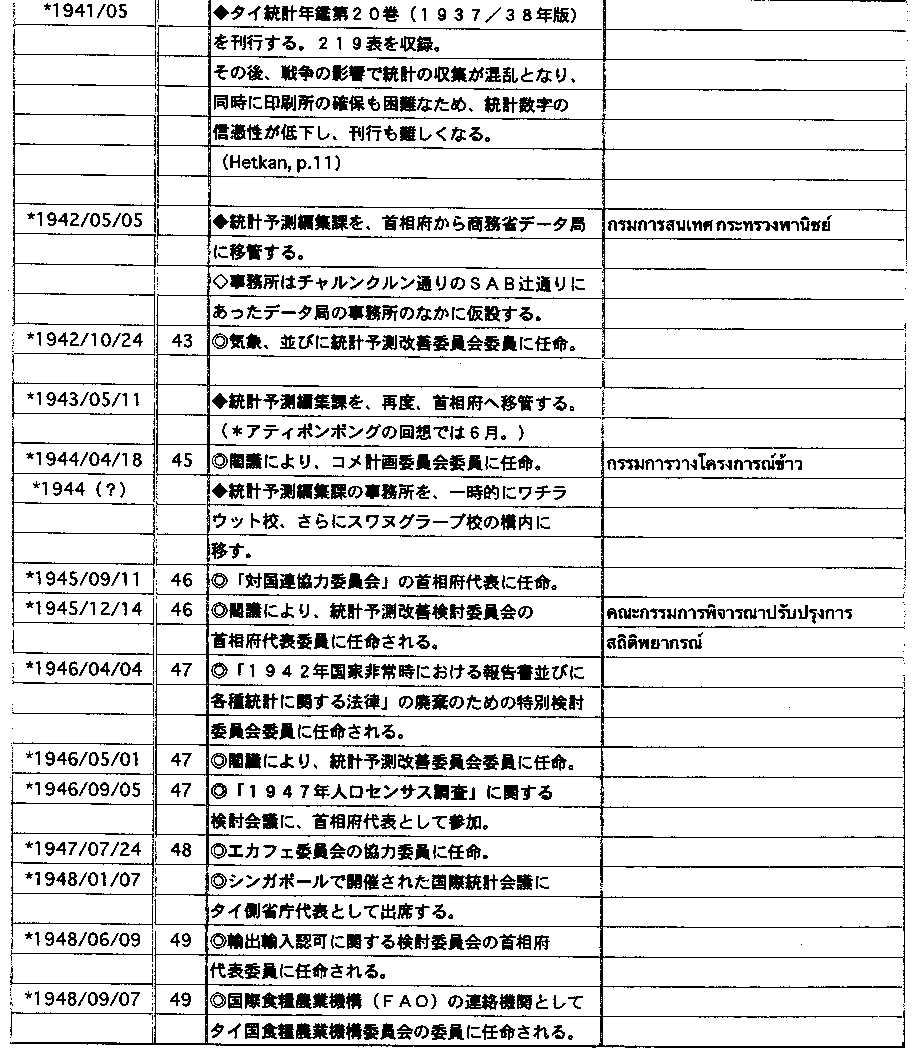 *1941/05 ◆タイ統計年鑑第20巻(1937/38年版)
を刊行する。219表を収録。
その後、戦争の影響で統計の収集が混乱となり、
同時に印刷所の確保も困難なため、統計数字の
信憑性が低下し、刊行も難しくなる。
(Hetkan, p.11)
*1942/05/05 ◆統計予測編集課を、首相府から商務省データ局 กรมการสนเทศ กระทรวงพานิชย์
に移管する。
◇事務所はチャルンクルン通りのSAB辻通りに
あったデータ局の事務所のなかに仮設する。
*1942/10/24 43 ◎気象、並びに統計予測改善委員会委員に任命。
*1943/05/11 ◆統計予測編集課を、再度、首相府へ移管する。
(*アティポンポングの回想では6月。)
*1944/04/18 45 ◎閣議により、コメ計画委員会委員に任命。 กรรมการวางโครงการณ์ข้าว
*1944(?) ◆統計予測編集課の事務所を、一時的にワチラ
ウット校、さらにスワヌグラーブ校の構内に
移す。
*1945/09/11 46 ◎「対国連協力委員会」の首相府代表に任命。
*1945/12/14 46 ◎閣議により、統計予測改善検討委員会の คณะกรรมการพิจารณาปรับปรุงการ
首相府代表委員に任命される。 สถิติพยากรณ์
*1946/04/04 47 ◎「1942年国家非常時における報告書並びに
各種統計に関する法律」の廃棄のための特別検討
委員会委員に任命される。
*1946/05/01 47 ◎閣議により、統計予測改善委員会委員に任命。
*1946/09/05 47 ◎「1947年人口センサス調査」に関する
検討会議に、首相府代表として参加。
*1947/07/24 48 ◎エカフェ委員会の協力委員に任命。
*1948/01/07 ◎シンガポールで開催された国際統計会議に
タイ側省庁代表として出席する。
*1948/06/09 49 ◎輸出輸入認可に関する検討委員会の首相府
代表委員に任命される。
*1948/09/07 49 ◎国際食糧農業機構(FAO)の連絡機関として
タイ国食糧農業機構委員会の委員に任命される。